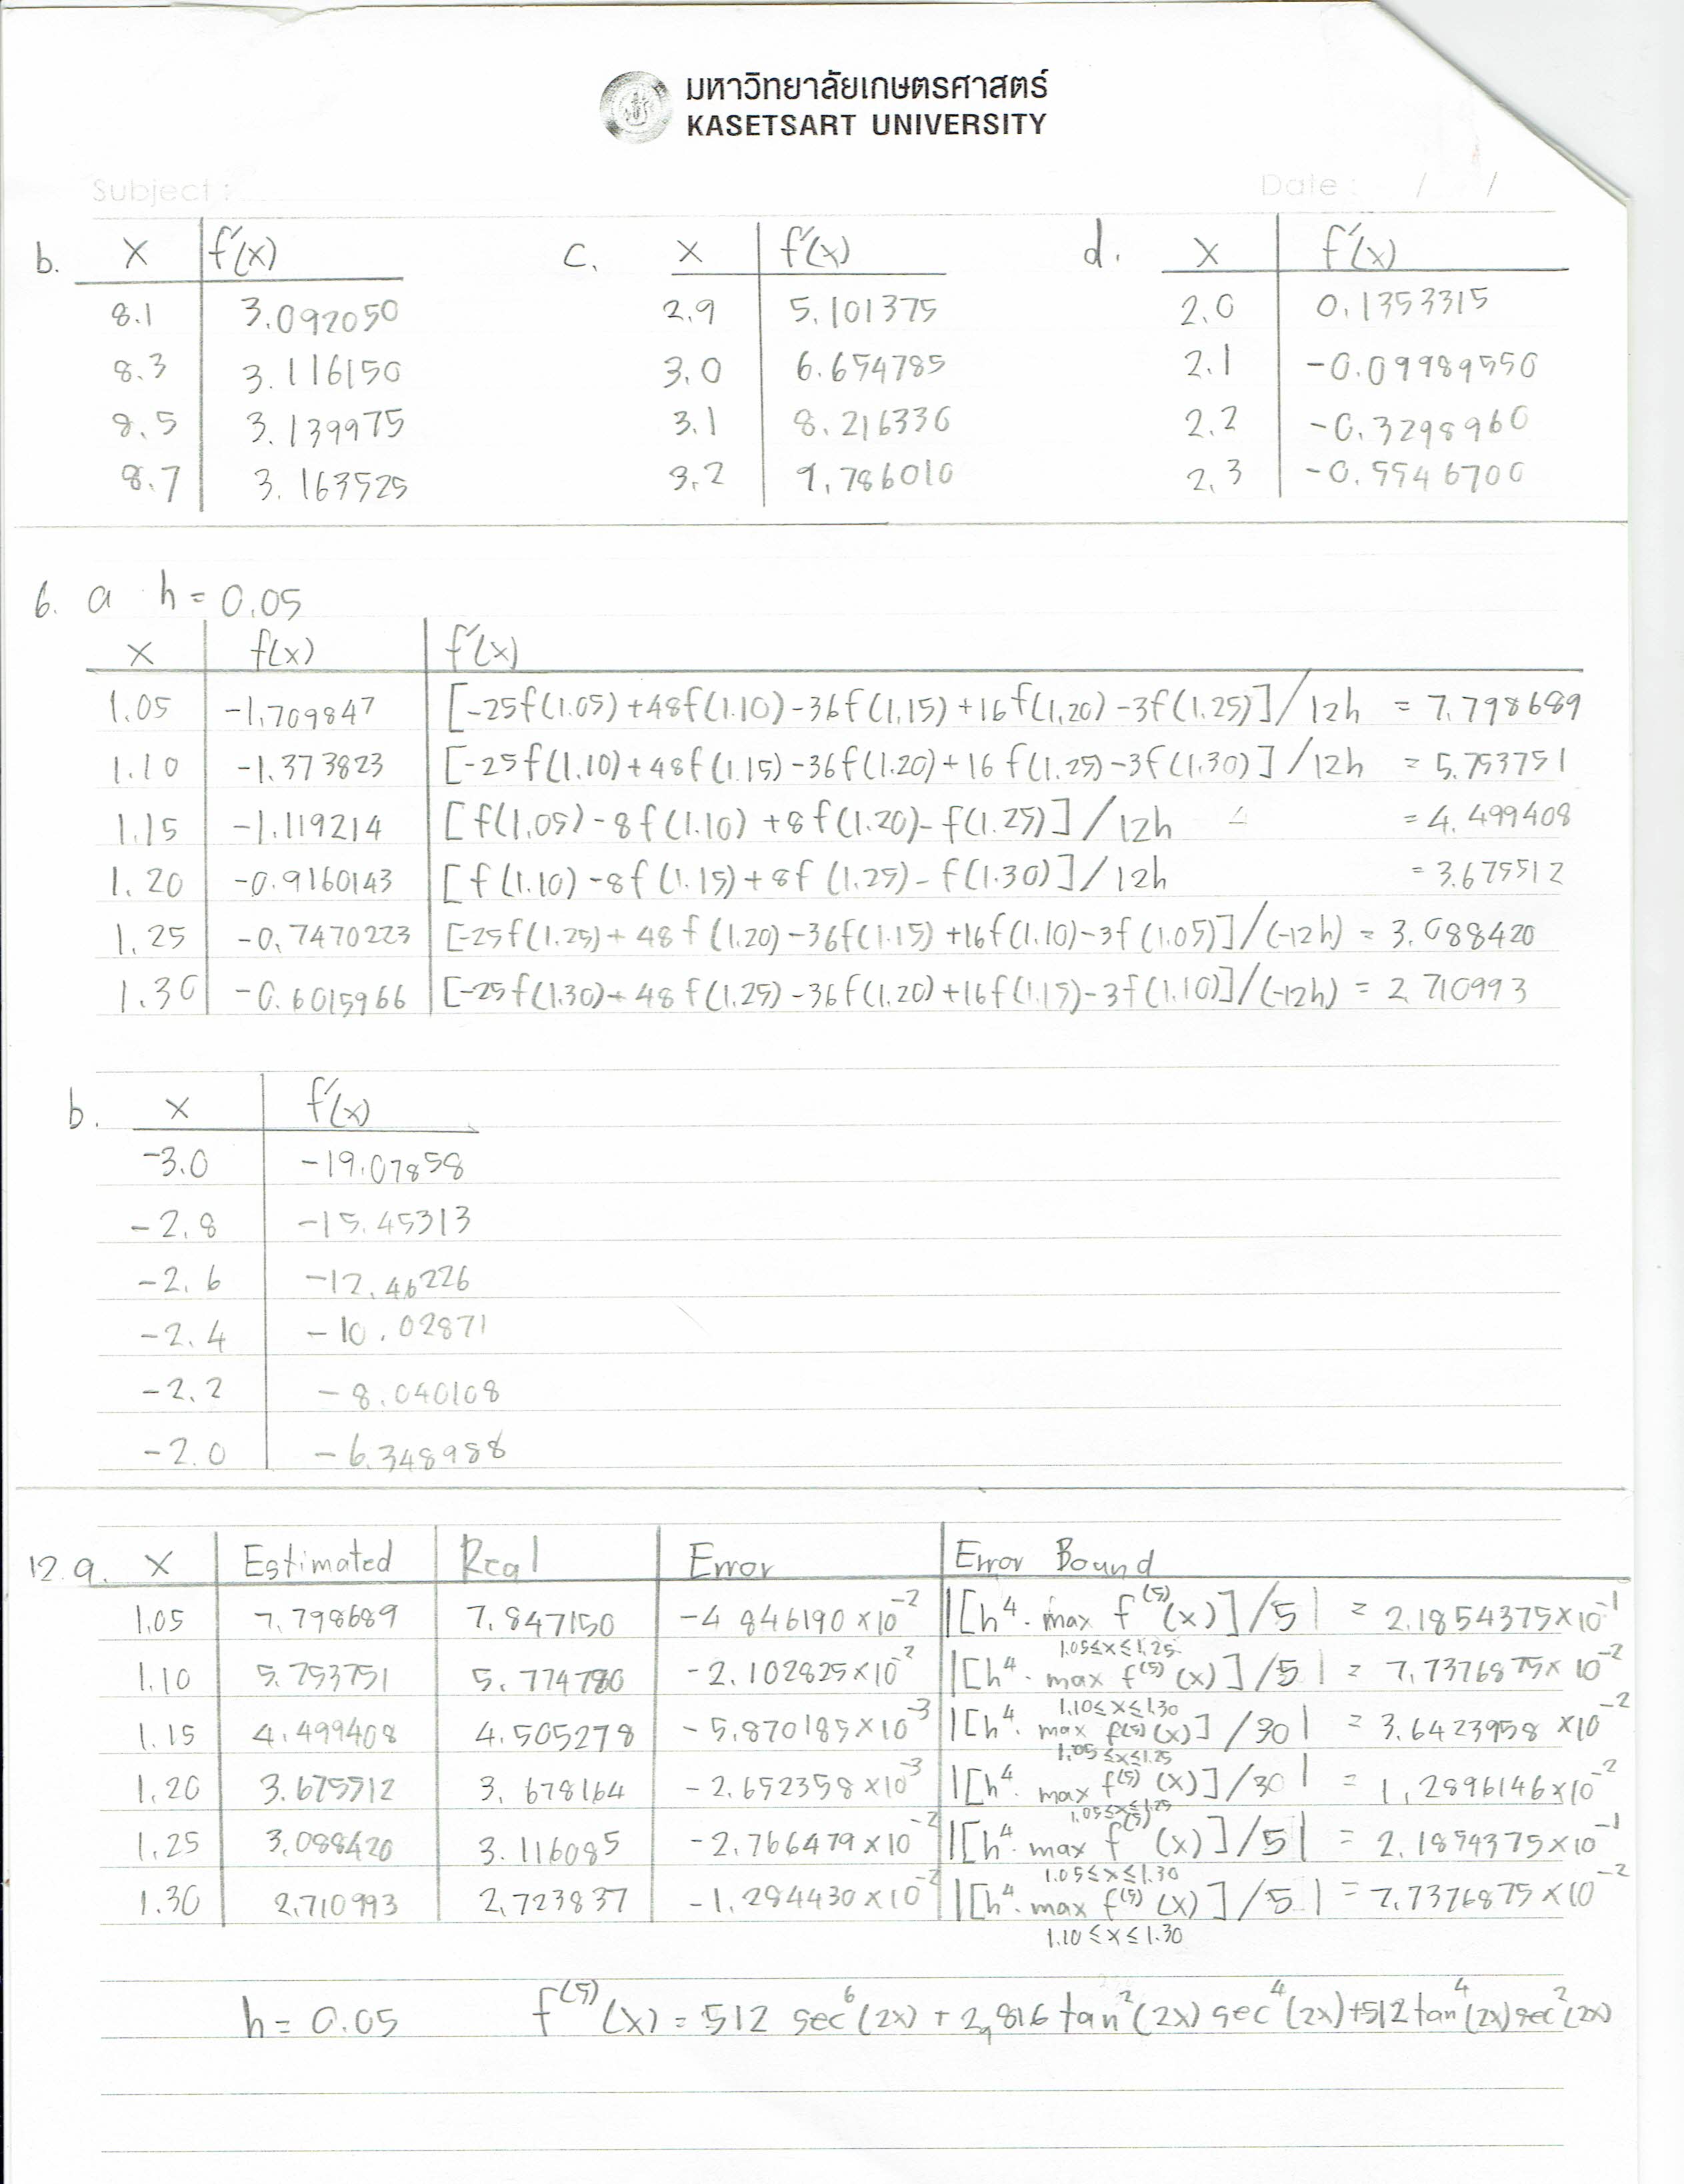 มหาวิทยาลัยเกษตรศาสตร์
KASETSART UNIVERSITY
Subject :
Date : / /
b. x f'(x) c. x f'(x) d. x f'(x)
8.1 3.092050 2.9 5.101375 2.0 0.1353315
8.3 3.116150 3.0 6.654785 2.1 -0.09989550
8.5 3.139975 3.1 8.216330 2.2 -0.3298960
8.7 3.163525 3.2 9.786010 2.3 -0.5546700
6. a h = 0.05
x f(x) f'(x)
1.05 -1.709847 [-25f(1.05)+48f(1.10)-36f(1.15)+16f(1.20)-3f(1.25)]/12h = 7.798689
1.10 -1.373823 [-25f(1.10)+48f(1.15)-36f(1.20)+16f(1.25)-3f(1.30)]/12h = 5.753751
1.15 -1.119214 [f(1.05)-8f(1.10)+8f(1.20)-f(1.25)]/12h = 4.499408
1.20 -0.9160143 [f(1.10)-8f(1.15)+8f(1.25)-f(1.30)]/12h = 3.675512
1.25 -0.7470223 [-25f(1.25)+48f(1.20)-36f(1.15)+16f(1.10)-3f(1.05)]/(-12h) = 3.088420
1.30 -0.6015966 [-25f(1.30)+48f(1.25)-36f(1.20)+16f(1.15)-3f(1.10)]/(-12h) = 2.710993
b. x f'(x)
-3.0 -19.07858
-2.8 -15.45313
-2.6 -12.46226
-2.4 -10.02871
-2.2 -8.040108
-2.0 -6.348988
12.a. x Estimated Real Error Error Bound
1.05 7.798689 7.847150 -4.846190×10⁻² |[h⁴. max f⁽⁵⁾(x)]/5| = 2.1854375×10⁻¹
1.05≤x≤1.25
1.10 5.753751 5.774780 -2.102825×10⁻² |[h⁴. max f⁽⁵⁾(x)]/5| = 7.7376875×10⁻²
1.10≤x≤1.30
1.15 4.499408 4.505278 -5.870185×10⁻³ |[h⁴. max f⁽⁵⁾(x)]/30| = 3.6423958×10⁻²
1.05≤x≤1.25
1.20 3.675512 3.678164 -2.652358×10⁻³ |[h⁴. max f⁽⁵⁾(x)]/30| = 1.2896146×10⁻²
1.05≤x≤1.25
1.25 3.088420 3.116085 -2.766479×10⁻² |[h⁴. max f⁽⁵⁾(x)]/5| = 2.1854375×10⁻¹
1.05≤x≤1.30
1.30 2.710993 2.723837 -1.284430×10⁻² |[h⁴. max f⁽⁵⁾(x)]/5| = 7.7376875×10⁻²
1.10≤x≤1.30
h = 0.05 f⁽⁵⁾(x) = 512 sec⁶(2x) + 2,816 tan²(2x) sec⁴(2x)+512tan⁴(2x)sec²(2x)